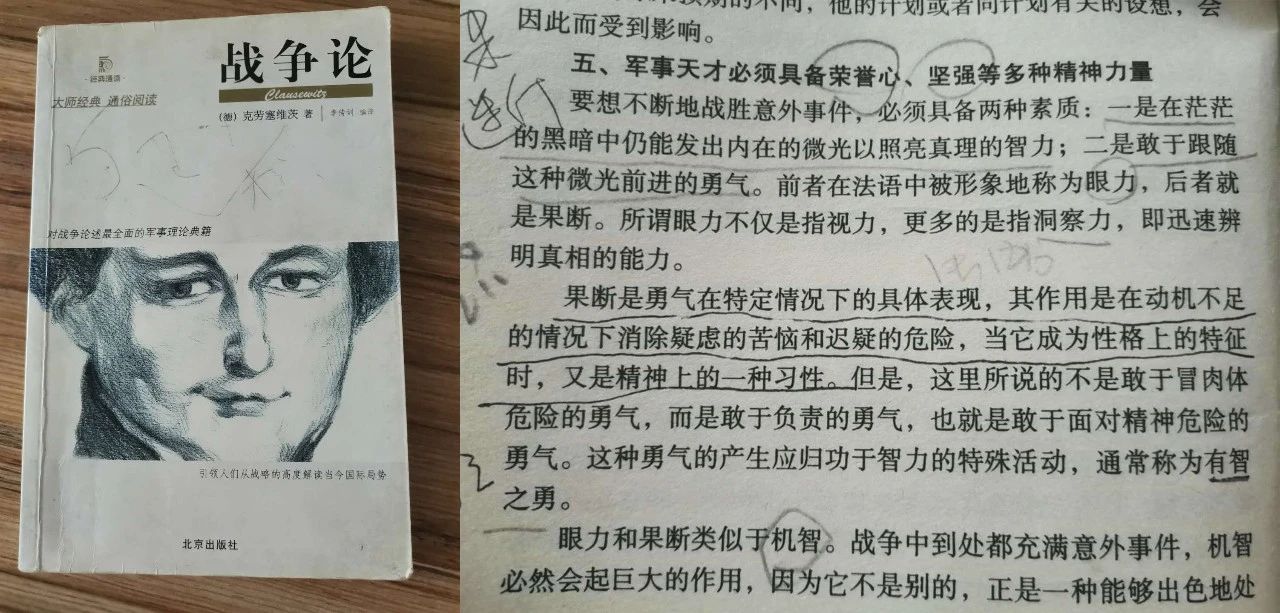 经典通读
战争论
Clausewitz
大师经典 通俗阅读
(德) 克劳塞维茨 著 李传训 编译
对战争论述最全面的军事理论典籍
引领人们从战略的高度解读当今国际局势
北京出版社
的不同，他的计划或者同计划有关的设想，会
因此而受到影响。
五、军事天才必须具备荣誉心、坚强等多种精神力量
要想不断地战胜意外事件，必须具备两种素质：一是在茫茫
的黑暗中仍能发出内在的微光以照亮真理的智力；二是敢于跟随
这种微光前进的勇气。前者在法语中被形象地称为眼力，后者就
是果断。所谓眼力不仅是指视力，更多的是指洞察力，即迅速辨
明真相的能力。
果断是勇气在特定情况下的具体表现，其作用是在动机不足
的情况下消除疑虑的苦恼和迟疑的危险，当它成为性格上的特征
时，又是精神上的一种习性。但是，这里所说的不是敢于冒肉体
危险的勇气，而是敢于负责的勇气，也就是敢于面对精神危险的
勇气。这种勇气的产生应归功于智力的特殊活动，通常称为有智
之勇。
眼力和果断类似于机智。战争中到处都充满意外事件，机智
必然会起巨大的作用，因为它不是别的，正是一种能够出色地处